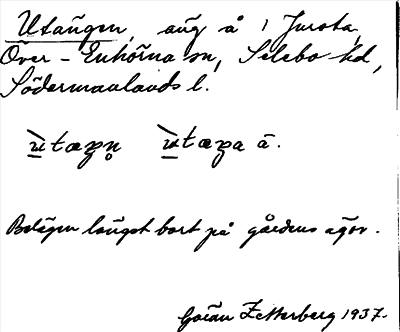 Utängen, äng å 1 Jursta,
Över-Enhörna sn, Selebo hd,
Södermanlands l.
Belägen längst bort på gårdens ägor.
Göran Zetterberg 1937.